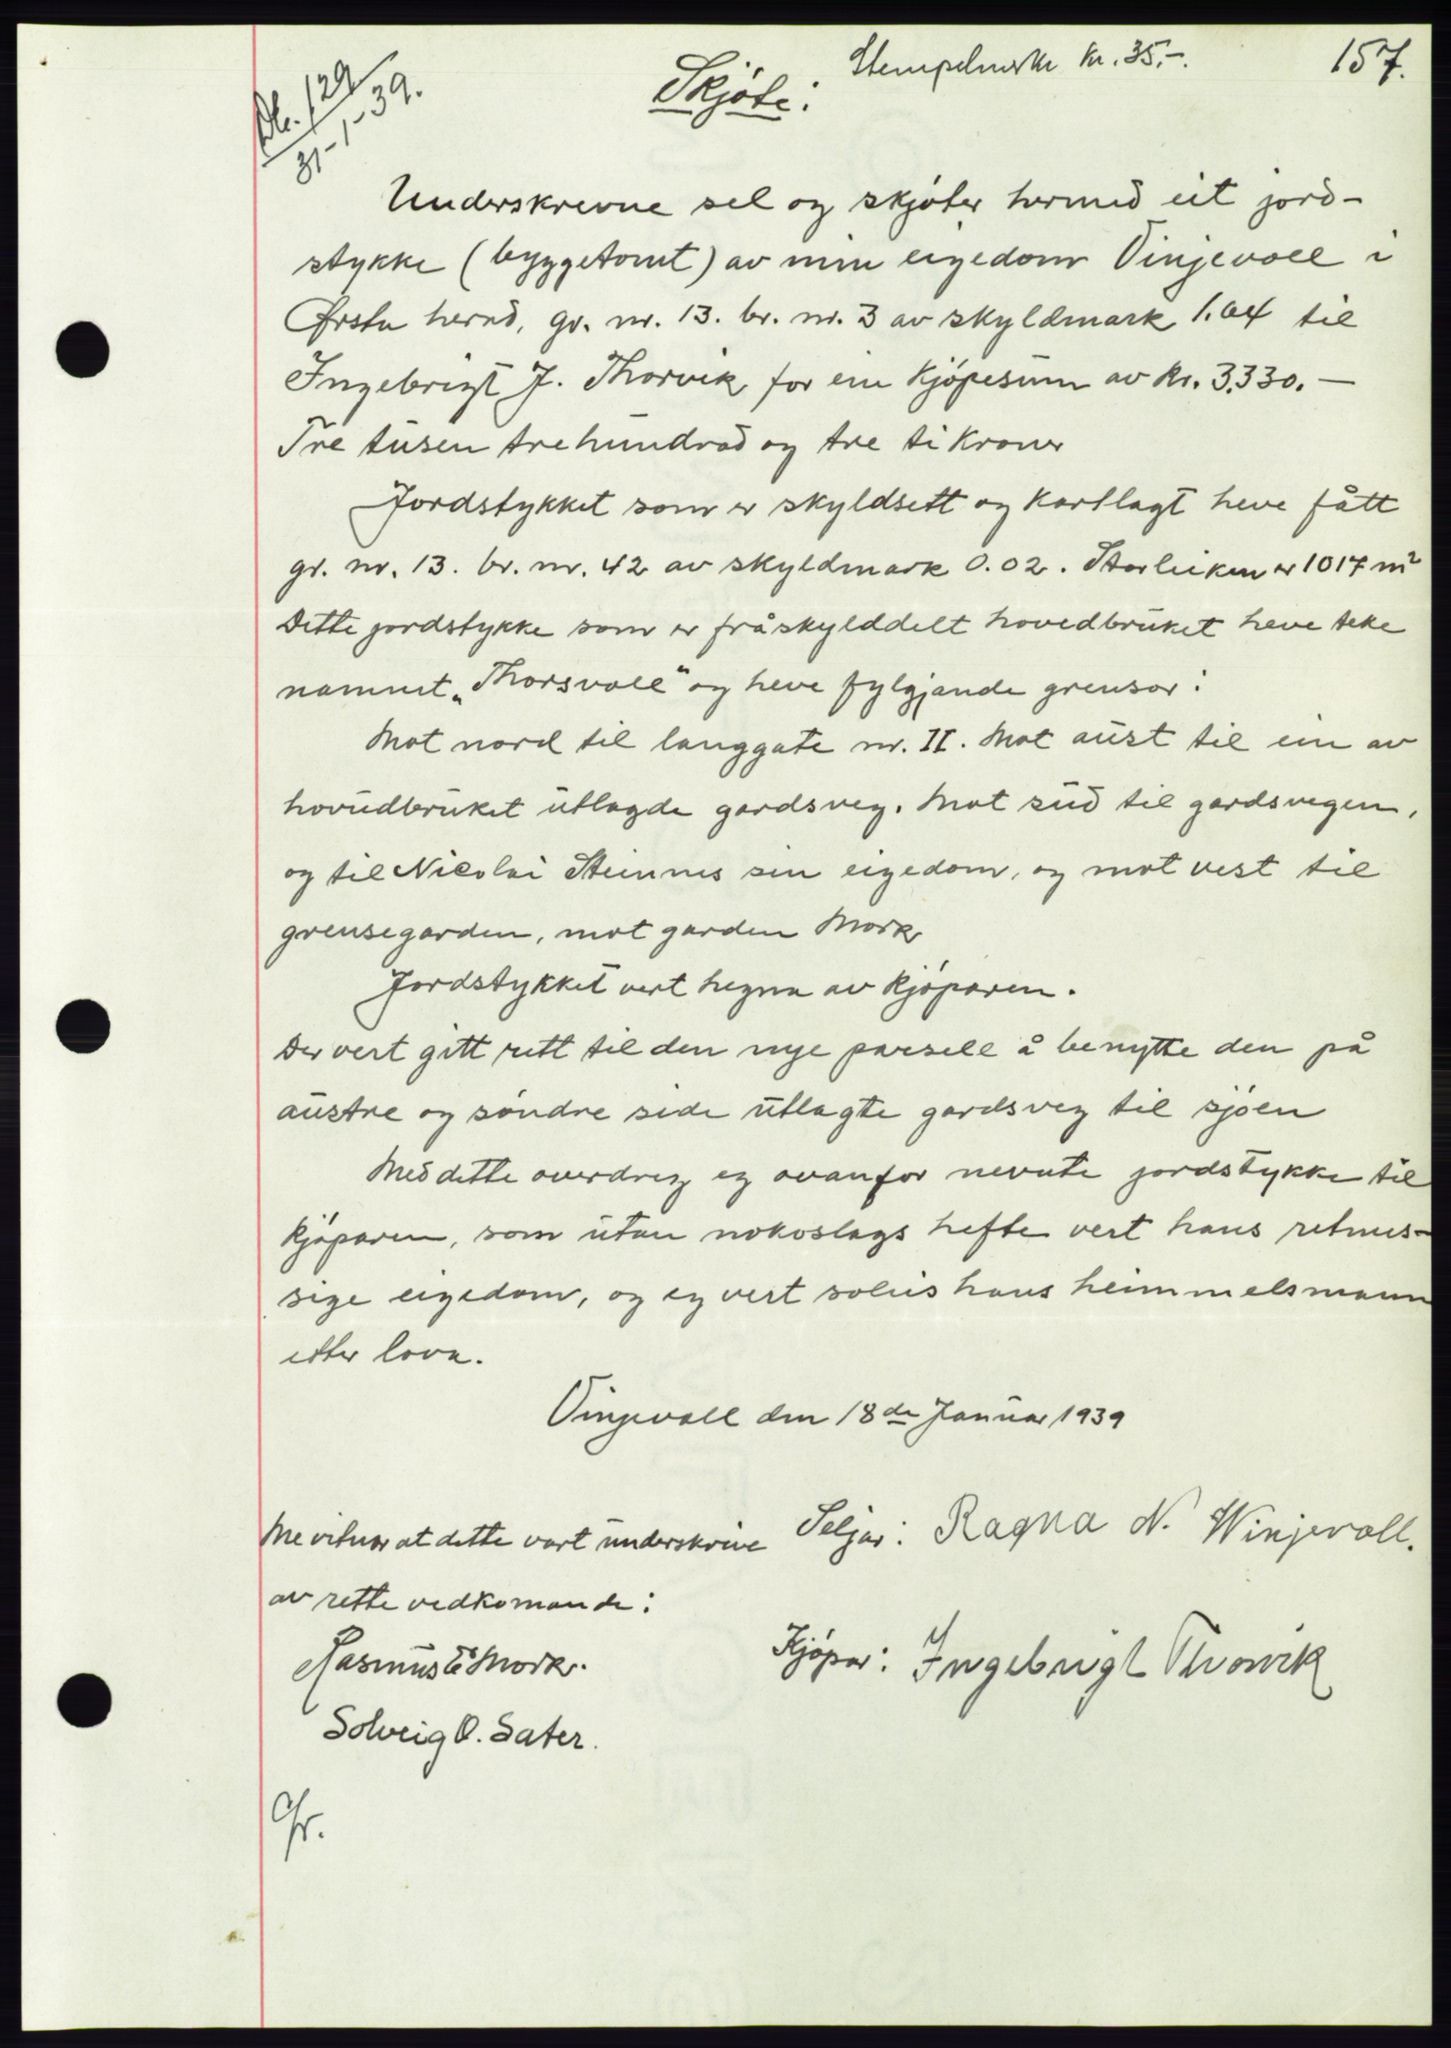 Stempelmerke kr. 35,-.
157.
Db. 129
31-1-39.
Skjøte:
Underskrevne sel og skjøter hermed eit jord-
stykke (byggetomt) av min eigedom Vinjevoll i
Ørsta herad, gr. nr. 13. br. nr. 3 av skyldmark 1.64 til
Ingebrigt J. Thorvik, for ein kjøpesum av kr. 3.330.-
Tre tusen trehundrad og tre ti kroner
Jordstykket som er skyldsett og kartlagt heve fått
gr. nr. 13. br. nr. 42 av skyldmark 0.02. Storleiken er 1017 m²
Dette jordstykke som er fråskylddelt hovedbruket heve teke
namnet „Thorsvoll" og heve fylgjande grensor:
Mot nord til langgate nr. II. Mot aust til ein av
hovudbruket utlagde gardsveg. Mot sud til gardsvegen,
og til Nicolai Steinnes sin eigedom, og mot vest til
grensegarden, mot garden Mork
Jordstykket vert hegna av kjøparen.
Der vert gitt rett til den nye parsell å benytte den på
austre og søndre side utlagte gardsveg til sjøen
Med dette overdreg eg ovanfor nevnte jordstykke til
kjøparen, som utan nokoslags hefte vert hans retmes-
sige eigedom, og eg vert soleis hans heimmelsmann
etter lova.
Vinjevoll den 18de Januar 1939
Me vitnar at dette vart underskrive
Seljar: Ragna N. Winjevoll.
av rette vedkomande:
Rasmus E Mork.
Kjøpar: Ingebrigt Thorvik
Solveig O. Sater.